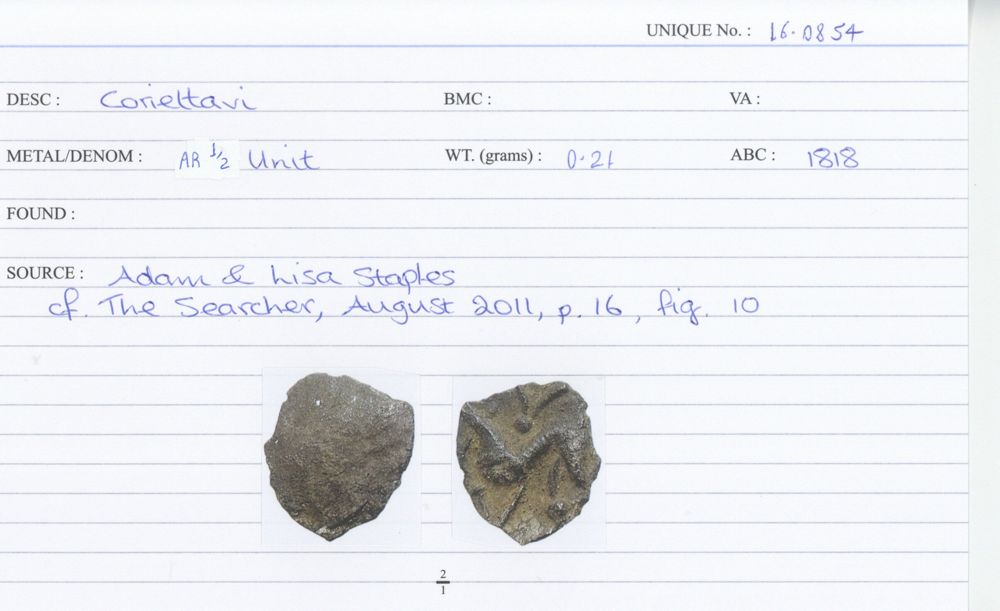 UNIQUE No. : 16·0854
DESC : Corieltavi BMC : VA :
METAL/DENOM : AR 1/2 Unit WT. (grams) : 0·21 ABC : 1818
FOUND :
SOURCE : Adam & Lisa Staples
cf. The Searcher, August 2011, p. 16, fig. 10
2/1